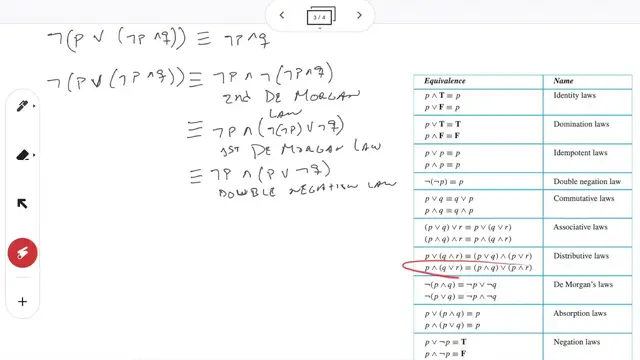 3 / 4
¬(p ∨ (¬p ∧ q)) ≡ ¬p ∧ q
¬(p ∨ (¬p ∧ q)) ≡ ¬p ∧ ¬(¬p ∧ q)
2nd DE MORGAN
LAW
≡ ¬p ∧ (¬(¬p) ∨ ¬q)
1st DE MORGAN LAW
≡ ¬p ∧ (p ∨ ¬q)
DOUBLE NEGATION LAW
Equivalence Name
p ∧ T ≡ p Identity laws
p ∨ F ≡ p
p ∨ T ≡ T Domination laws
p ∧ F ≡ F
p ∨ p ≡ p Idempotent laws
p ∧ p ≡ p
¬(¬p) ≡ p Double negation law
p ∨ q ≡ q ∨ p Commutative laws
p ∧ q ≡ q ∧ p
(p ∨ q) ∨ r ≡ p ∨ (q ∨ r) Associative laws
(p ∧ q) ∧ r ≡ p ∧ (q ∧ r)
p ∨ (q ∧ r) ≡ (p ∨ q) ∧ (p ∨ r) Distributive laws
p ∧ (q ∨ r) ≡ (p ∧ q) ∨ (p ∧ r)
¬(p ∧ q) ≡ ¬p ∨ ¬q De Morgan's laws
¬(p ∨ q) ≡ ¬p ∧ ¬q
p ∨ (p ∧ q) ≡ p Absorption laws
p ∧ (p ∨ q) ≡ p
p ∨ ¬p ≡ T Negation laws
p ∧ ¬p ≡ F